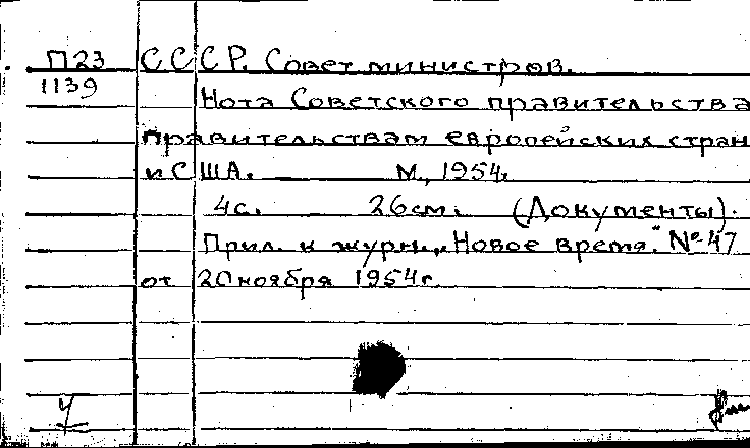 П23 СССР. Совет министров.
1139
Нота Советского правительства
правительствам европейских стран
и США. М., 1954.
4с. 26см. (Документы).
Прил. к журн. „Новое время". № 47
от 20 ноября 1954г.